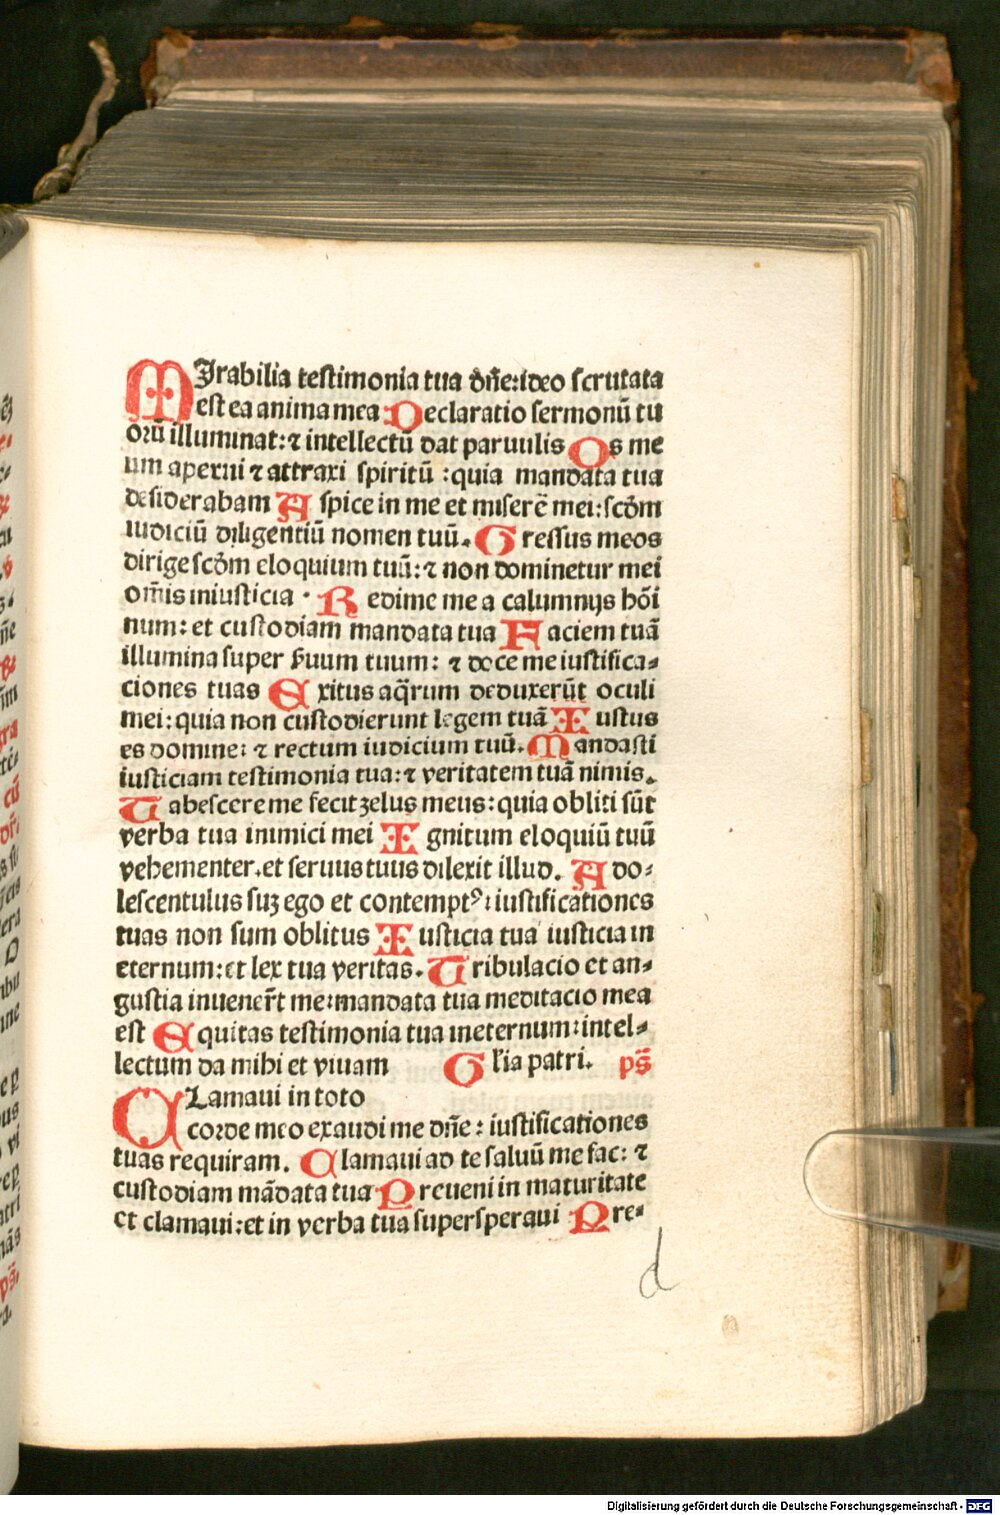 MIrabilia testimonia tua dñe: ideo scrutata
est ea anima mea Declaratio sermonū tu
orū illuminat: ⁊ intellectū dat paruulis Os me
um aperui ⁊ attraxi spiritū : quia mandata tua
desiderabam Aspice in me et miserē mei: scd̄m
iudiciū diligentiū nomen tuū. Gressus meos
dirige scd̄m eloquium tuū: ⁊ non dominetur mei
om̄is iniusticia . Redime me a calumnijs hōi
num: et custodiam mandata tua Faciem tuā
illumina super ẜuum tuum: ⁊ doce me iustifica-
ciones tuas Exitus aq̄rum deduxerūt oculi
mei: quia non custodierunt legem tuā Iustus
es domine: ⁊ rectum iudicium tuū. Mandasti
iusticiam testimonia tua: ⁊ veritatem tuā nimis.
Tabescere me fecit zelus meus: quia obliti sūt
verba tua inimici mei Ignitum eloquiū tuū
vehementer. et seruus tuus dilexit illud. Ado-
lescentulus suꝫ ego et contemptꝰ: iustificationes
tuas non sum oblitus Iusticia tua iusticia in
eternum: et lex tua veritas. Tribulacio et an-
gustia inuener̄t me: mandata tua meditacio mea
est Equitas testimonia tua ineternum: intel-
lectum da mihi et viuam Gl'ia patri. ps̄
CLamaui in toto
corde meo exaudi me dñe: iustificationes
tuas requiram. Clamaui ad te saluū me fac: ⁊
custodiam mādata tua Preueni in maturitate
et clamaui: et in verba tua supersperaui Pre-
d
Digitalisierung gefördert durch die Deutsche Forschungsgemeinschaft - DFG